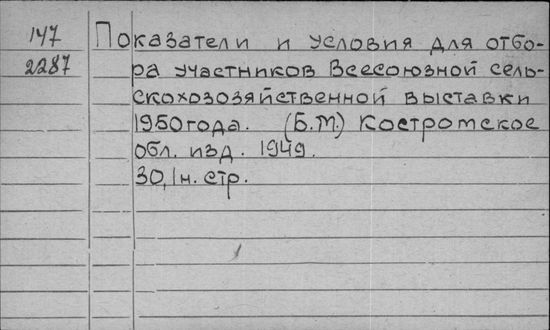 147 Показатели и условия для отбо-
2287 ра участников Всесоюзной сель-
скохозозяйственной выставки
1950 года. (Б.М.) Костромское
обл. изд. 1949.
30,1н. стр.